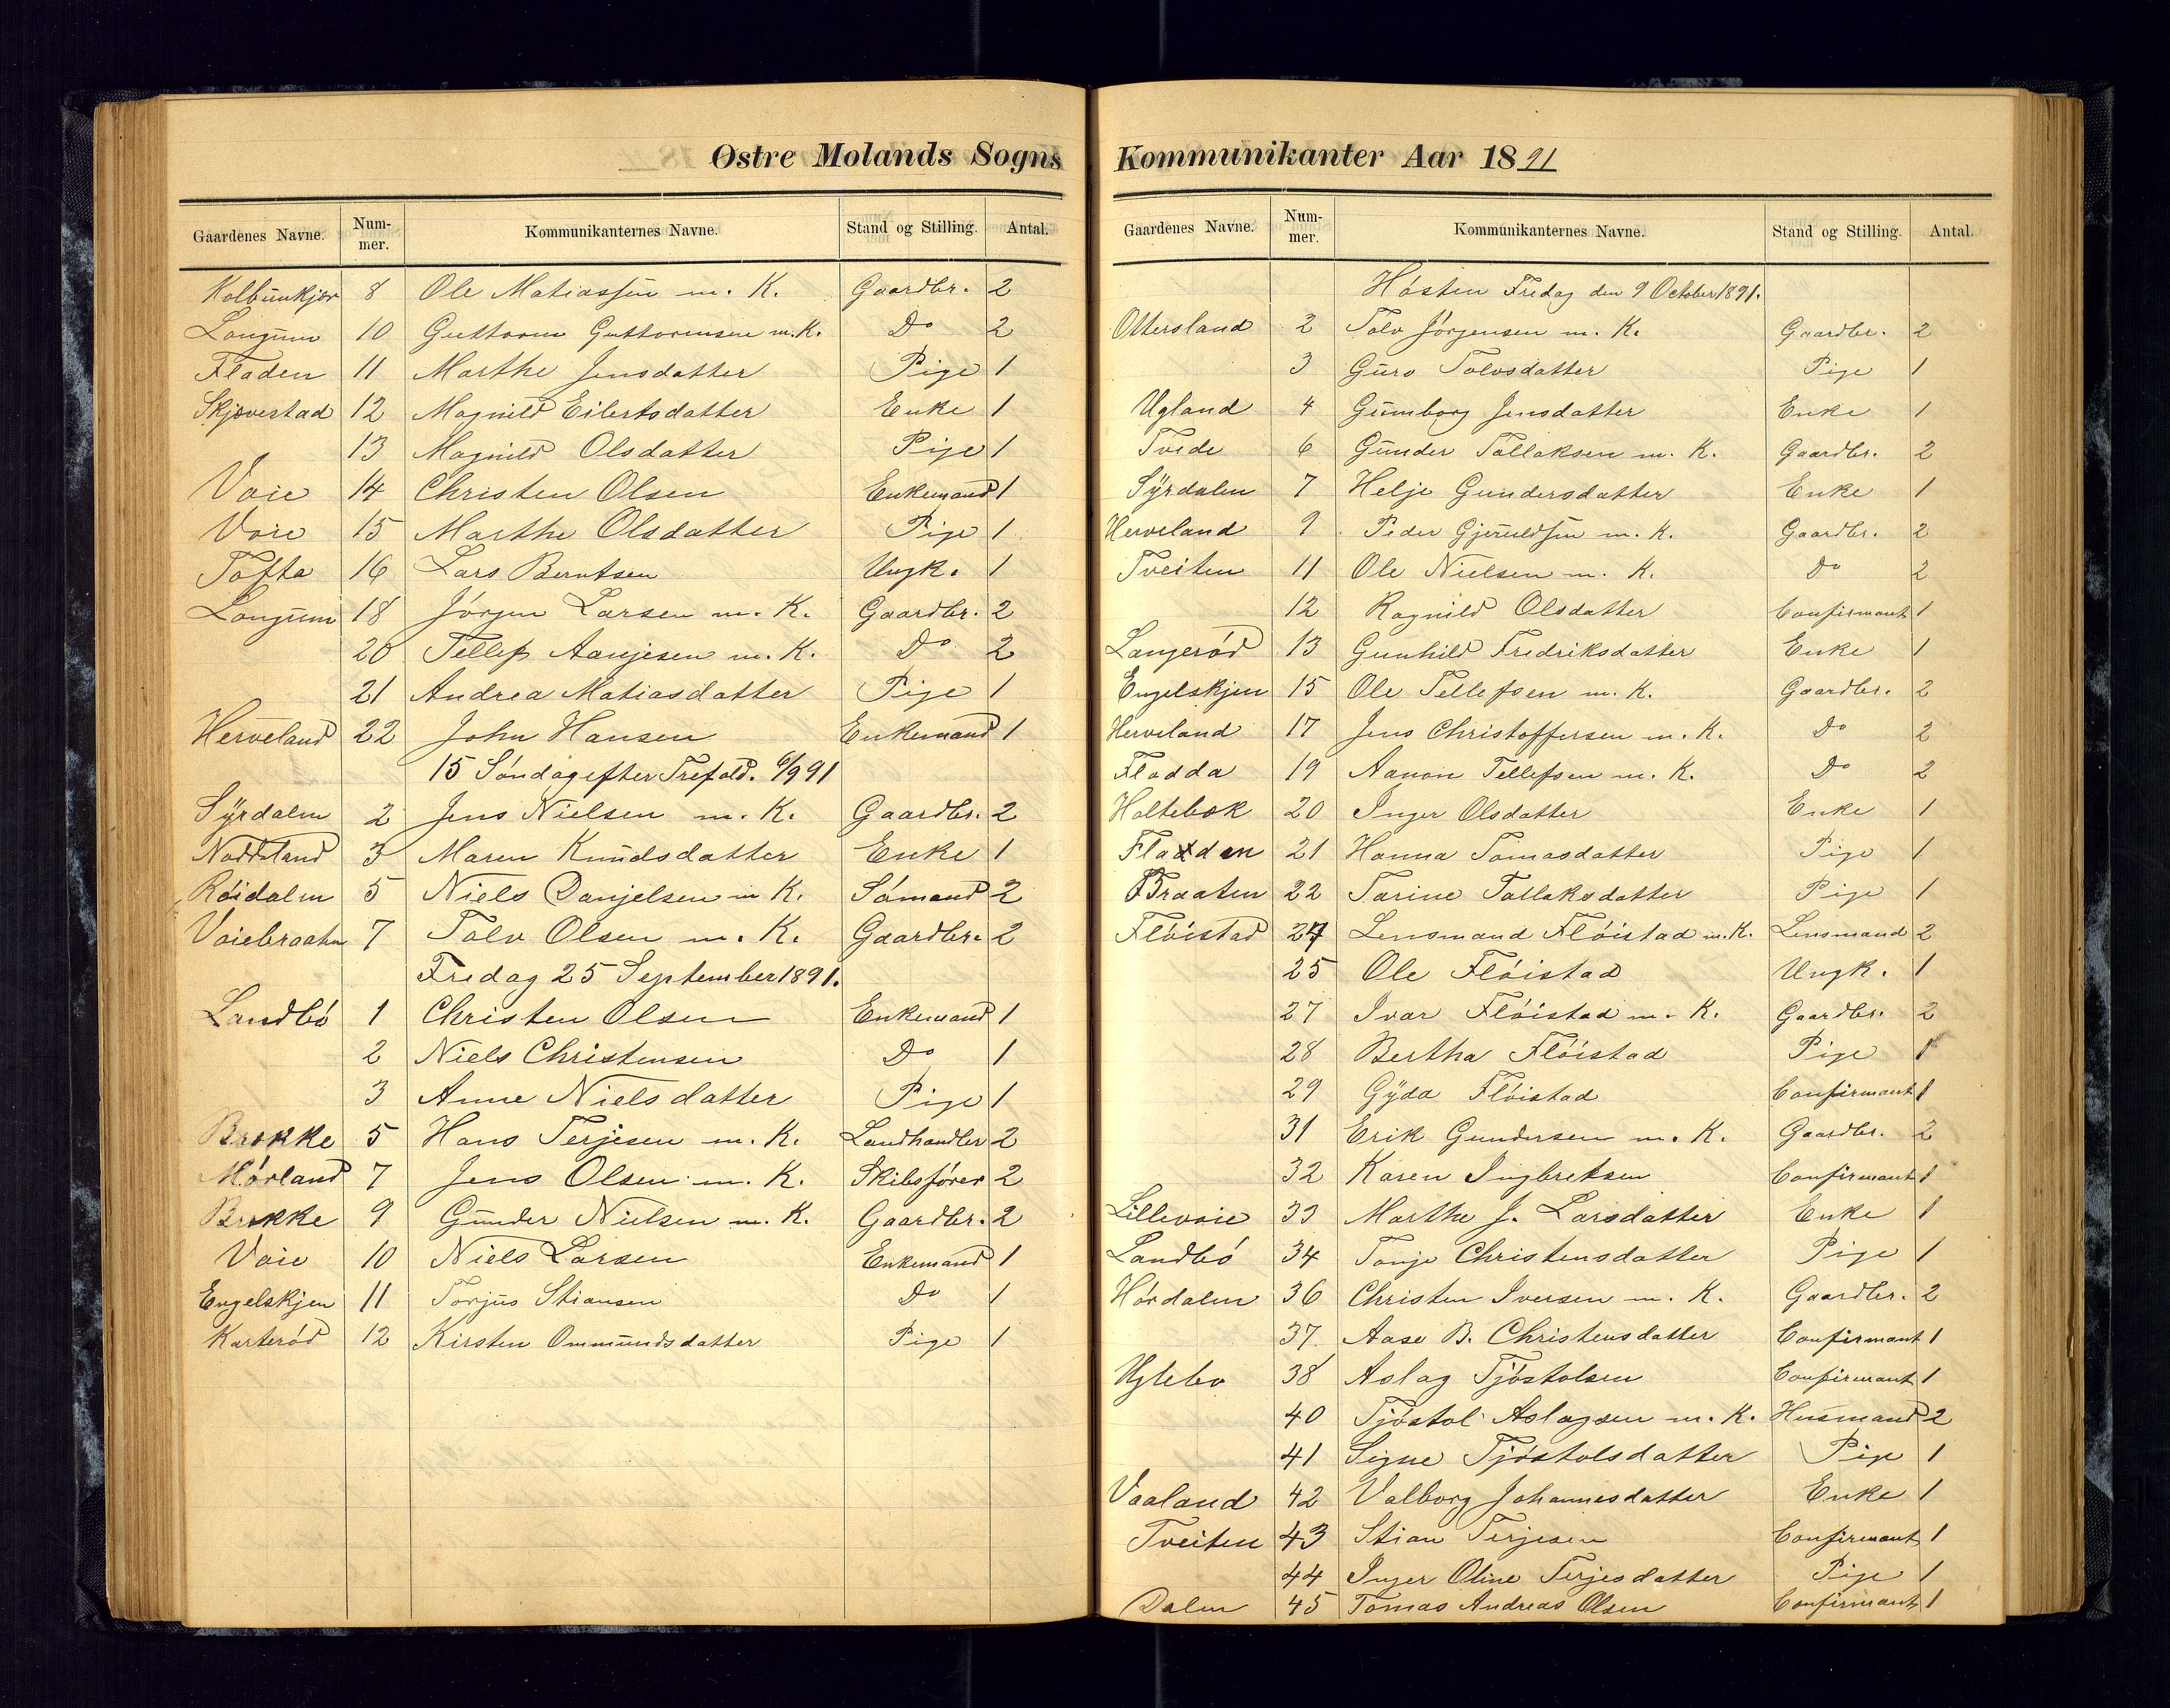 Østre Molands Sogns
Gaardenes Navne. Nummer. Kommunikanternes Navne. Stand og Stilling. Antal.
Kolbunkjær 8 Ole Matiassen m. K. Gaardbr. 2
Longum 10 Guttorm Guttormsen m. K. Do 2
Fladen 11 Marthe Jensdatter Pige 1
Skjævestad 12 Magnild Eilertsdatter Enke 1
13 Magnild Olsdatter Pige 1
Vaie 14 Christen Olsen Enkemand 1
Vaie 15 Marthe Olsdatter Pige 1
Tofta 16 Lars Berntsen Ungk. 1
Longum 18 Jórgen Larsen m. K. Gaardbr. 2
20 Tellef Aanjesen m. K. Do 2
21 Andrea Matiasdatter Pige 1
Herveland 22 John Hansen Enkemand 1
15 Sóndag efter Trefold. 6/9 91
Syrdalen 2 Jens Nielsen m. K. Gaardbr. 2
Noddeland 3 Maren Knudsdatter Enke 1
Róidalen 5 Niels Danjelsen m K. Sómand 2
Vaiebraaten 7 Tolv Olsen m. K. Gaardbr. 2
Fredag 25 September 1891.
Landbó 1 Christen Olsen Enkemand 1
2 Niels Christensen Do 1
3 Anne Nielsdatter Pige 1
Brekke 5 Hans Terjesen m. K. Landhandler 2
Mórland 7 Jens Olsen m. K. Skibsfórer 2
Brekke 9 Gunder Nielsen m. K. Gaardbr. 2
Vaie 10 Niels Larsen Enkemand 1
Engelskjen 11 Torjus Stiansen Do 1
Karteród 12 Kirsten Ommundsdatter Pige 1
Kommunikanter Aar 1891
Gaardenes Navne. Nummer. Kommunikanternes Navne. Stand og Stilling. Antal.
Hósten Fredag den 9 October 1891.
Ottersland 2 Tolv Jórgensen m. K. Gaardbr. 2
3 Guro Tolvsdatter Pige 1
Ugland 4 Gumborg Jensdatter Enke 1
Tvede 6 Gunder Tallaksen m. K. Gaardbr. 2
Syrdalen 7 Helje Gundersdatter Enke 1
Herveland 9 Peder Gjeruldsen m. K. Gaardbr. 2
Tveiten 11 Ole Nielsen m. K. Do 2
12 Ragnild Olsdatter Confirmant 1
Langeród 13 Gunhild Fredriksdatter Enke 1
Engelskjen 15 Ole Tellefsen m. K. Gaardbr. 2
Herveland 17 Jens Christoffersen m. K. Do 2
Fladda 19 Aanon Tellefsen m. K. Do 2
Holtebæk 20 Inger Olsdatter Enke 1
Fladden 21 Hanna Tomasdatter Pige 1
Braaten 22 Tarine Tallaksdatter Pige 1
Flóistad 24 Lensmand Flóistad m. K. Lensmand 2
25 Ole Flóistad Ungk. 1
27 Ivar Flóistad m. K. Gaardbr. 2
28 Bertha Flóistad Pige 1
29 Gyda Flóistad Confirmant 1
31 Erik Gundersen m. K. Gaardbr. 2
32 Karen Ingbretsen Confirmant 1
Lillevaie 33 Marthe J. Larsdatter Enke 1
Landbó 34 Tanje Christensdatter Pige 1
Hórdalen 36 Christen Iversen m. K. Gaardbr. 2
37. Aase B. Christensdatter Confirmant 1
Uglebo 38 Aslag Tjóstolsen Confirmant 1
40 Tjóstol Aslagsen m. K. Husmand 2
41 Signe Tjóstolsdatter Pige 1
Vaaland 42 Valborg Johannesdatter Enke 1
Tveiten 43 Stian Terjesen Confirmant 1
44 Inger Oline Terjesdatter Pige 1
Dalen 45 Tomas Andreas Olsen Confirmant 1